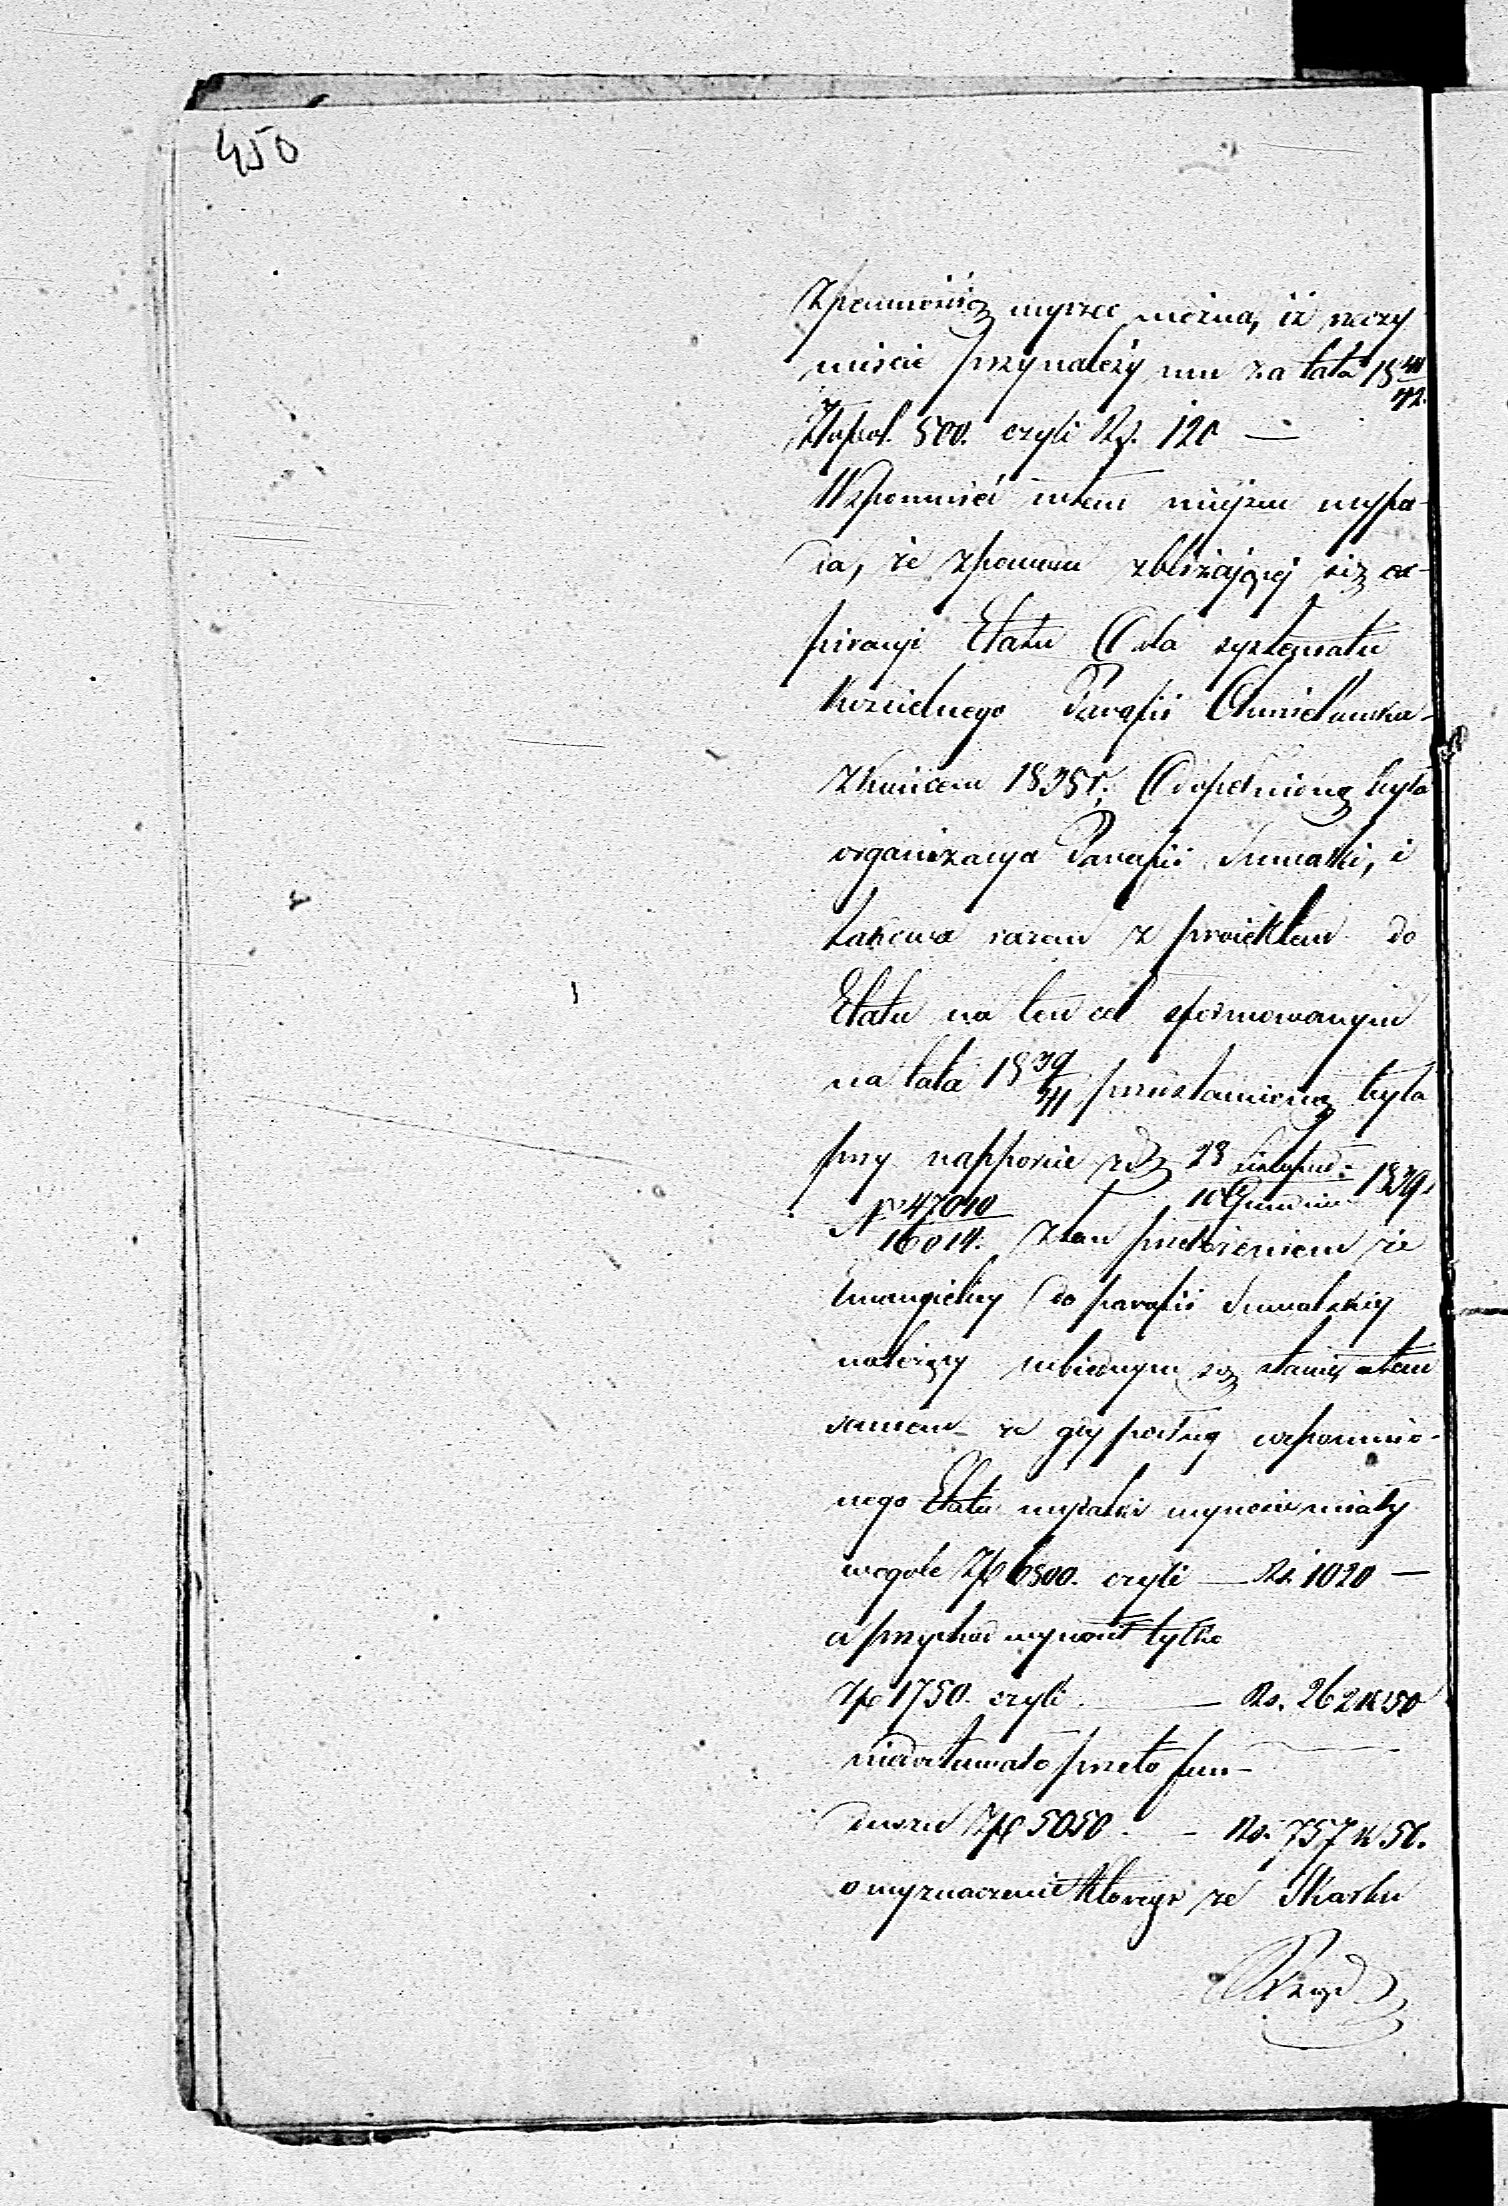 450
Zpewnością wyrzec można, iż rzeczy
wiście przynależy mu za lata 18 41/42.
Złopol. 800. czyli Rs. 120 —
Wspomnieć wtem miejscu wypa-
da, że zpowodu zbliżającej się ex-
piracyi Etatu dla systematu
Kościelnego Parafii Chmielowka
zkońcem 1838 r. dopełnioną była
organizacya Parafii Suwałki, i
takowa razem z proiektem do
Etatu na ten cel sformowanym
na lata 18 39/41 przedstawioną była
przy rapporcie z d. 28 Listopad: / 10 Grudnia 1839.
N 47040/16014. z tem przełożeniem że
Ewangielicy do parafii Suwalskiej
należący w biednym są stanie a tem
samem że gdy podług wspomnio-
nego Etatu wydatki wynosić miały
wogóle Złp 6800. czyli — Rs. 1020 —
a przychod wynosił tylko
Złp 1750. czyli — Rs. 262 k 50
niedostawało przeto fun-
duszu Złp 5050. - Rs. 757 k 50.
o wyznaczenie którego ze Skarbu
Rząd